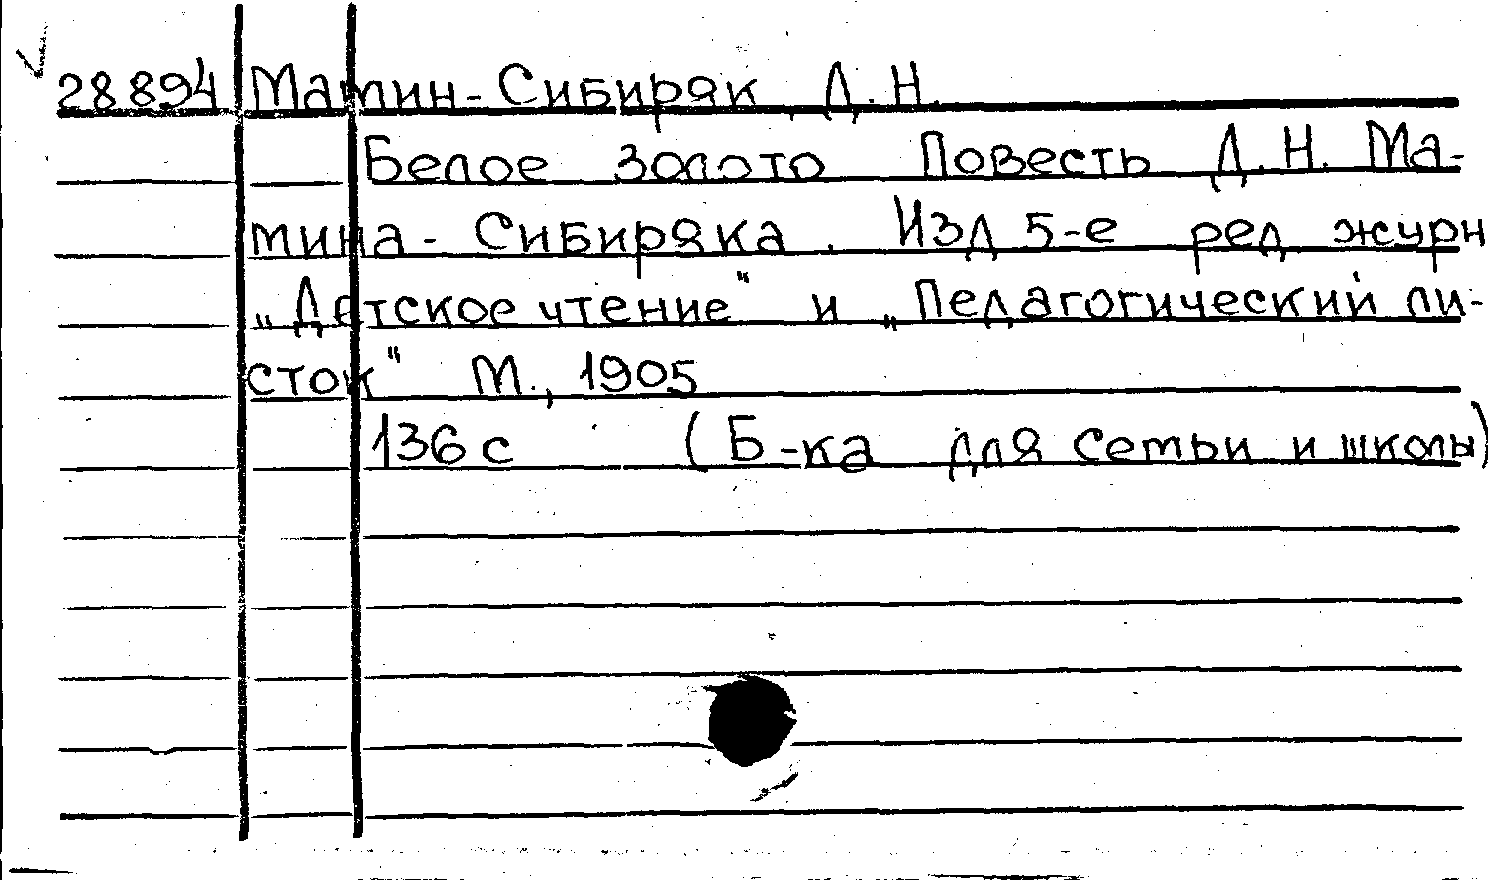 28894 Мамин-Сибиряк, Д. Н.
Белое золото Повесть Д. Н. Ма-
мина-Сибиряка. Изд 5-е ред журн
„Детское чтение" и „Педагогический ли-
сток" М., 1905
136 с (Б-ка для семьи и школы)